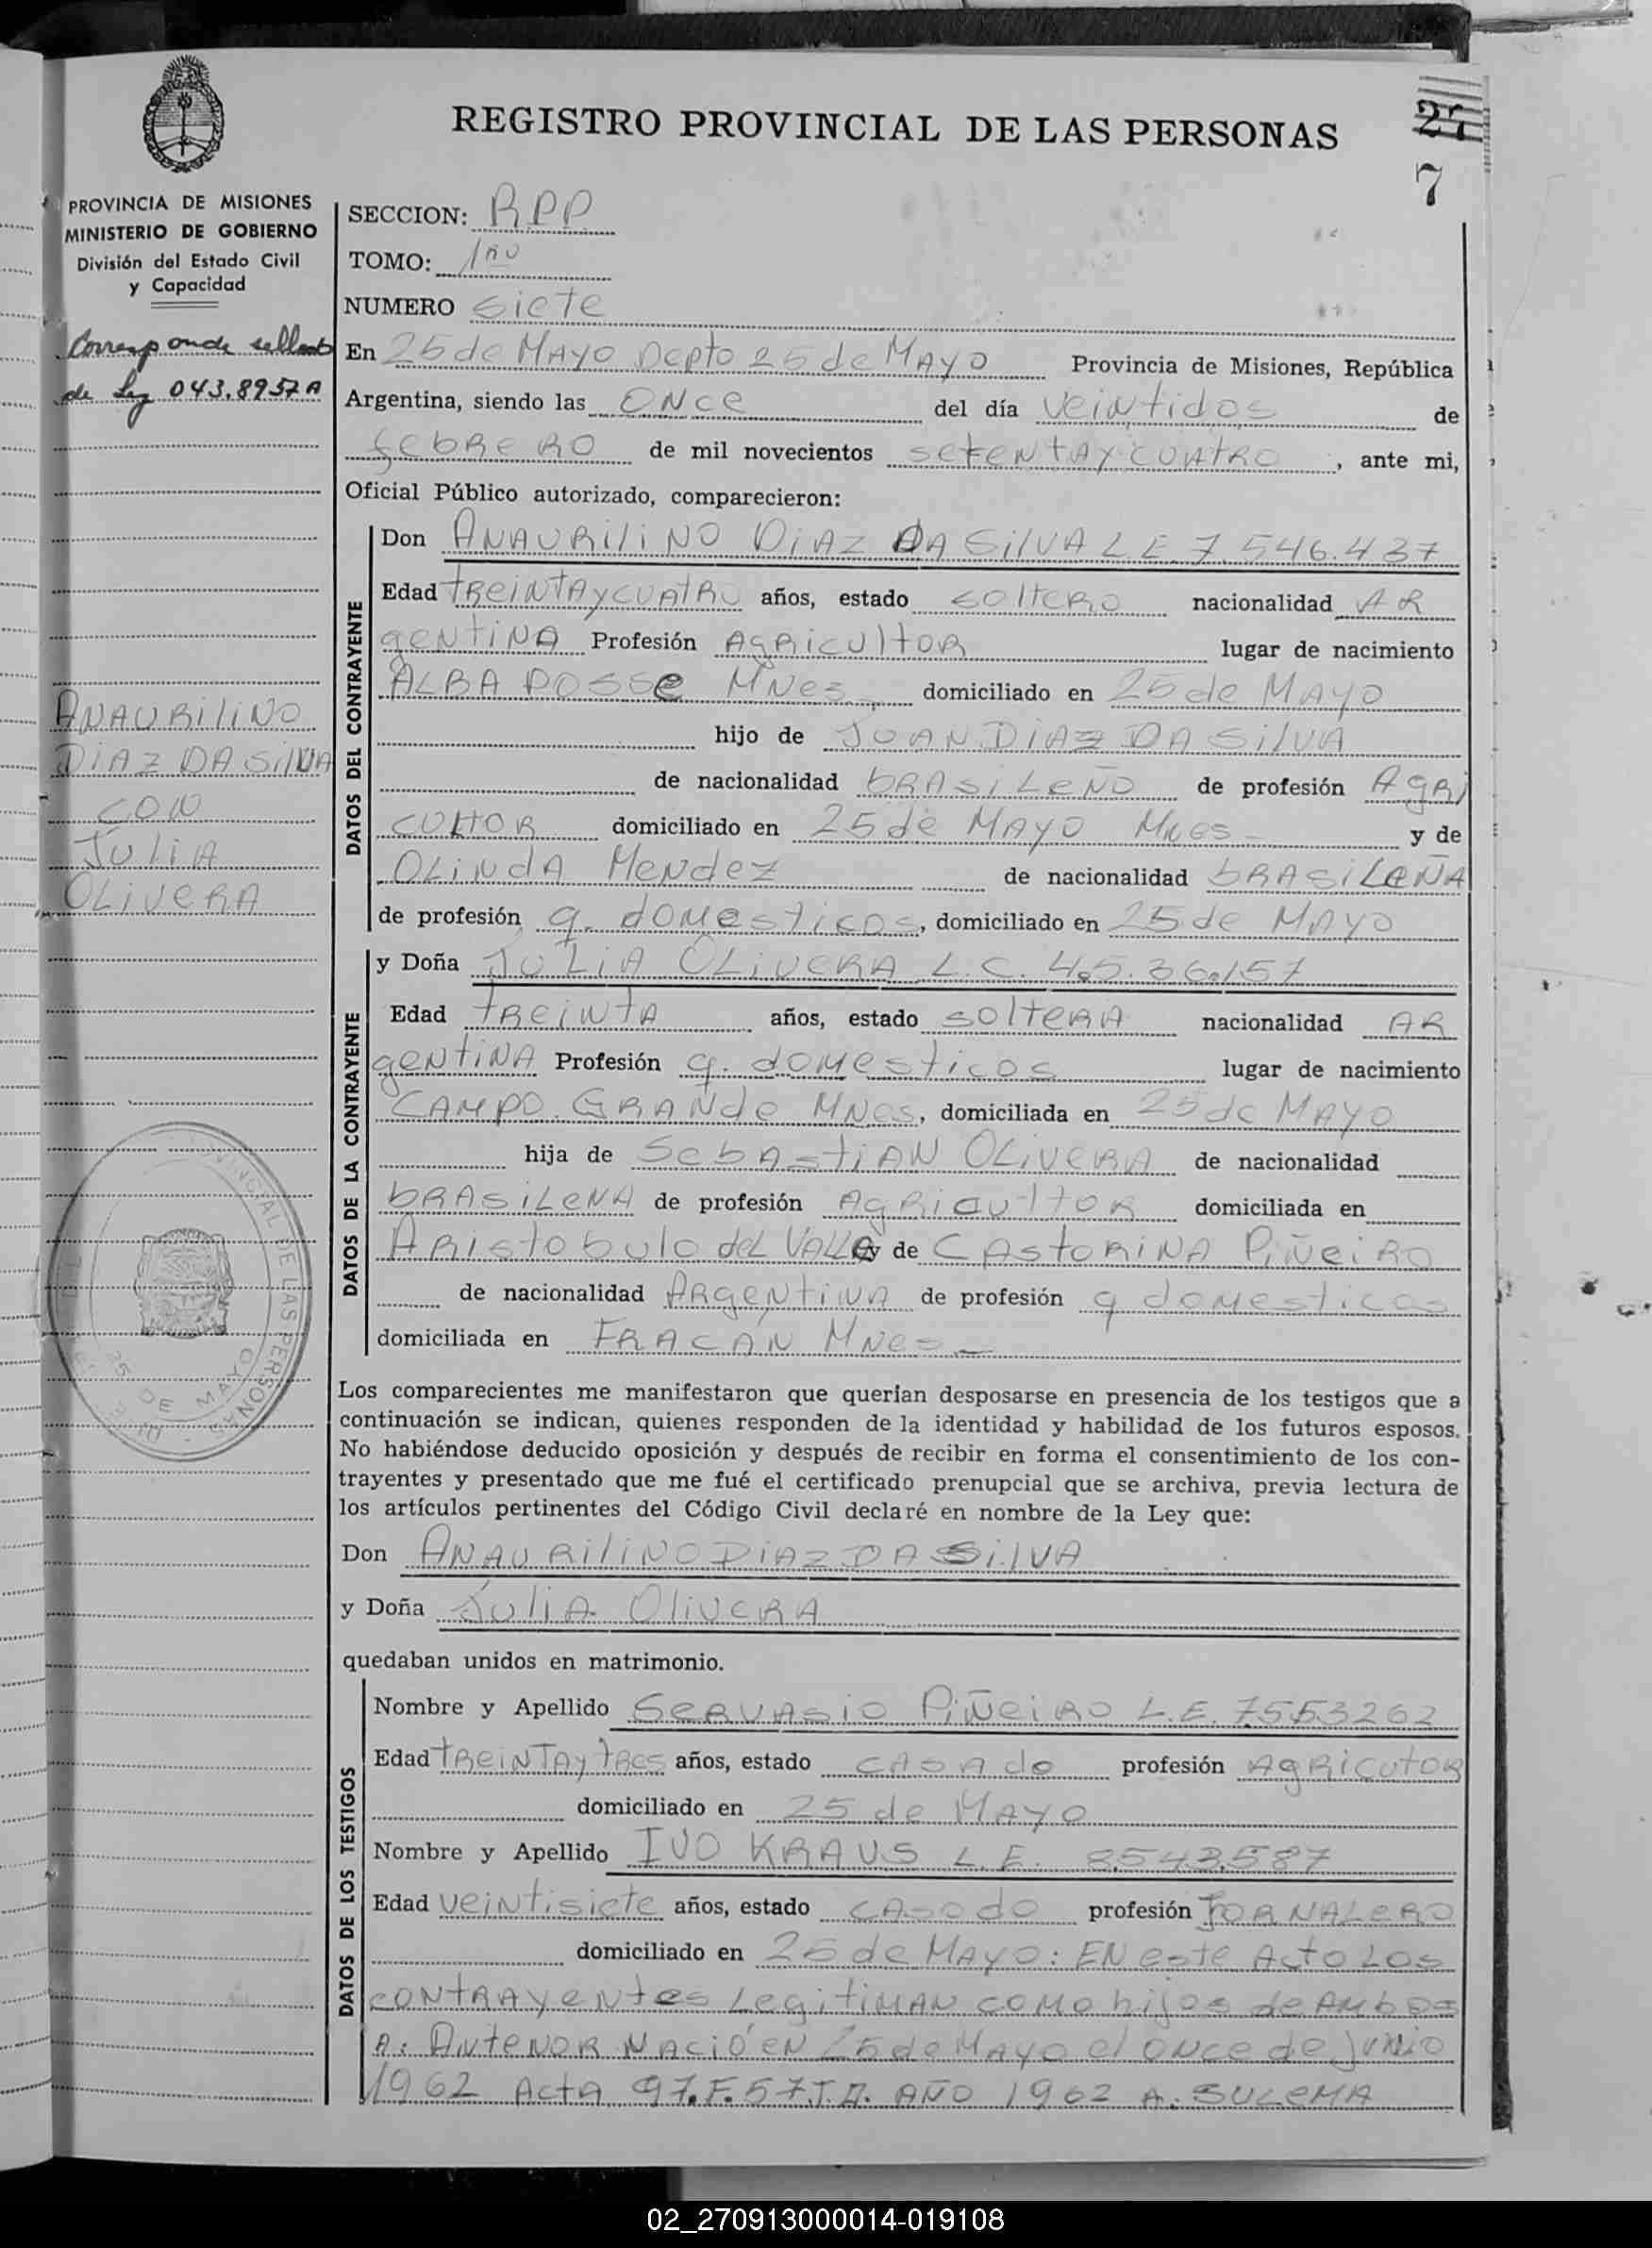 REGISTRO PROVINCIAL DE LAS PERSONAS
27
7
PROVINCIA DE MISIONES
MINISTERIO DE GOBIERNO
División del Estado Civil
y Capacidad
Corresponde sellado
de Ley 043.8957A
ANAURiliNO
DiAZ DA SilVA
CON
JUliA
OLiVeRA
SECCION: RPP
TOMO: 1RO
NUMERO siete
En 25 de MAYO Depto 25 de MAYO Provincia de Misiones, República
Argentina, siendo las ONce del día veintidos de
febReRO de mil novecientos setentAYCUAtRO, ante mi,
Oficial Público autorizado, comparecieron:
DATOS DEL CONTRAYENTE
Don ANAURiliNO DiAZ DA SilVA L.E. 7.546.437
Edad tReiNtAYCUAtRO años, estado solteRO nacionalidad AR
geNtiNA Profesión AgRicultOR lugar de nacimiento
ALBA POSSe MNes domiciliado en 25 de MAYO
hijo de JUAN DiAZ DA SilVA
de nacionalidad bRAsiLeÑO de profesión AgRi
cultOR domiciliado en 25 de MAYO MNes y de
OLiNdA MeNdez de nacionalidad bRASiLeÑA
de profesión q. domesticos, domiciliado en 25 de MAYO
DATOS DE LA CONTRAYENTE
y Doña JULiA OLiVeRA L.C. 4.536.157
Edad tReiNtA años, estado solteRA nacionalidad AR
geNtiNA Profesión q. domesticos lugar de nacimiento
CAMPO GRANde MNes, domiciliada en 25 de MAYO
hija de SebAstiAN OLiVeRA de nacionalidad
bRASiLeNA de profesión AgRicultOR domiciliada en
ARistobulo deL VALLe y de CAStORiNA PiÑeiRO
de nacionalidad ARgeNtiNA de profesión q domesticos
domiciliada en FRACAN MNes
Los comparecientes me manifestaron que querían desposarse en presencia de los testigos que a
continuación se indican, quienes responden de la identidad y habilidad de los futuros esposos.
No habiéndose deducido oposición y después de recibir en forma el consentimiento de los con-
trayentes y presentado que me fué el certificado prenupcial que se archiva, previa lectura de
los artículos pertinentes del Código Civil declaré en nombre de la Ley que:
Don ANAURiliNO DiAZ DA SilVA
y Doña JuliA OliveRA
quedaban unidos en matrimonio.
DATOS DE LOS TESTIGOS
Nombre y Apellido SeRVAsio PiÑeiRO L.E. 7553262
Edad tReiNTAytRes años, estado cASAdo profesión AgRicutOR
domiciliado en 25 de MAYO
Nombre y Apellido IVO KRAUS L.E. 8543587
Edad veiNtisiete años, estado cASodo profesión JORNALeRO
domiciliado en 25 de MAYO: EN este Acto Los
cONtRAYeNtes LegitiMAN como hijos de AMbos
A: ANteNOR NAció eN 25 de MAYO el ONce de juNio
1962 ActA 97.F.57.T. AÑO 1962 A. SULeMA
25 DE MAYO
02_270913000014-019108